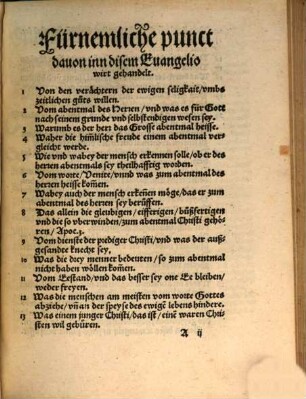 Fürnemliche punct
dauon inn disem Euangelio
wirt gehandelt.
1 Von den verächtern der ewigen seligkait/vmbs
zeitlichen gůts willen.
2 Vom abentmal des Herren/vnd was es für Gott
nach seinem grunde vnd selbstendigen wesen sey.
3 Warumb es der herr das Grosse abentmal heisse.
4 Waher die himlische freude einem abentmal ver-
gleicht werde.
5 Wie vnd wabey der mensch erkennen solle/ob er des
herren abentmals sey theilhafftig worden.
6 Vom worte/Venite/vnnd was zum abentmal des
herren heisse komen.
7 Wabey auch der mensch erkenen möge/das er zum
abentmal des herren sey berůffen.
8 Das allein die gleubigen/eifferigen/bůßfertigen
vnd die so vberwinden/zum abentmal Christi gehö-
ren/Apoc.3.
9 Vom dienste der prediger Christi/vnd was der auß-
gesandte knecht sey.
10 Was die drey menner bedeuten/so zum abentmal
nicht haben wöllen komen.
11 Vom Eestand/vnd das besser sey one Ee bleiben/
weder freyen.
12 Was die menschen am meisten vom worte Gottes
abziehe/vnan der speyse des ewige lebens hindere.
13 Was einem junger Christi/das ist/eine waren Chri-
sten wil gebüren.
A ij